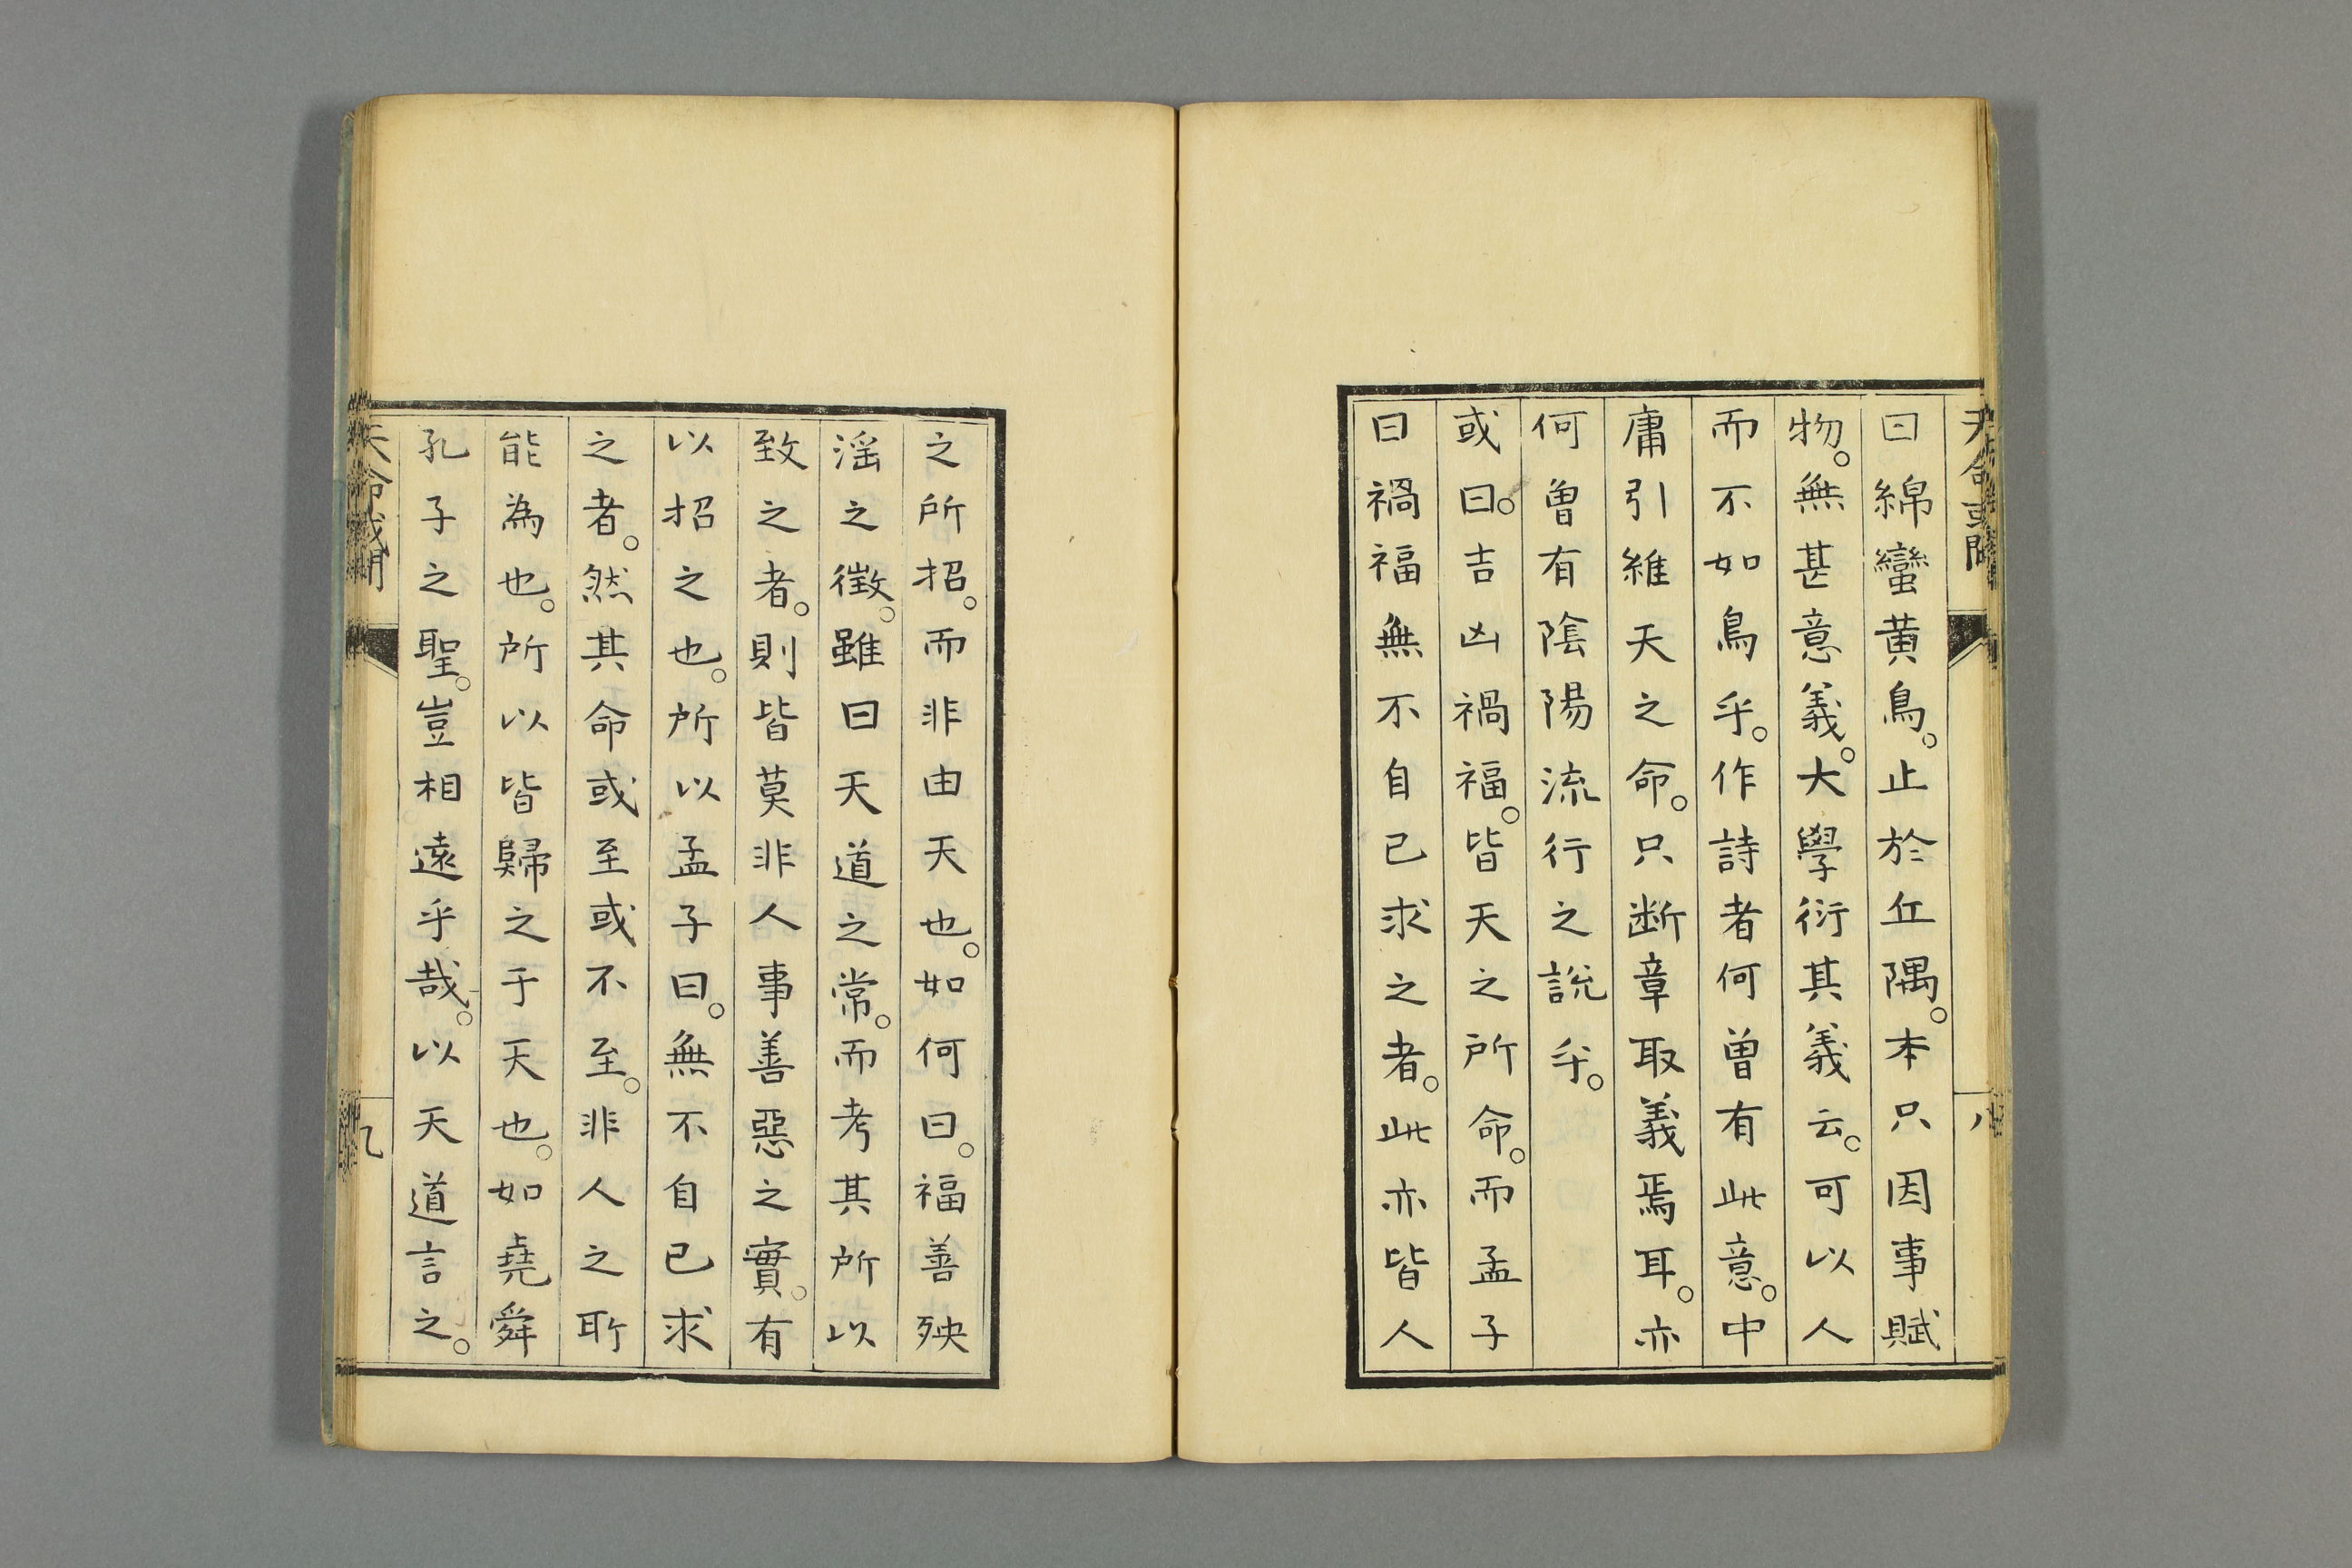 天命或問
八
曰綿蠻黃鳥。止於丘隅。本只因事賦
物。無甚意義。大學衍其義云。可以人
而不如鳥乎。作詩者何曾有此意。中
庸引維天之命。只断章取義焉耳。亦
何曾有陰陽流行之說乎。
或曰。吉凶禍福。皆天之所命。而孟子
曰禍福無不自已求之者。此亦皆人
之所招。而非由天也。如何曰。福善殃
滛之徵。雖曰天道之常。而考其所以
致之者。則皆莫非人事善惡之實。有
以招之也。所以孟子曰。無不自已求
之者。然其命或至或不至。非人之所
能為也。所以皆歸之于天也。如堯舜
孔子之聖。豈相遠乎哉。以天道言之。
天命或問
九